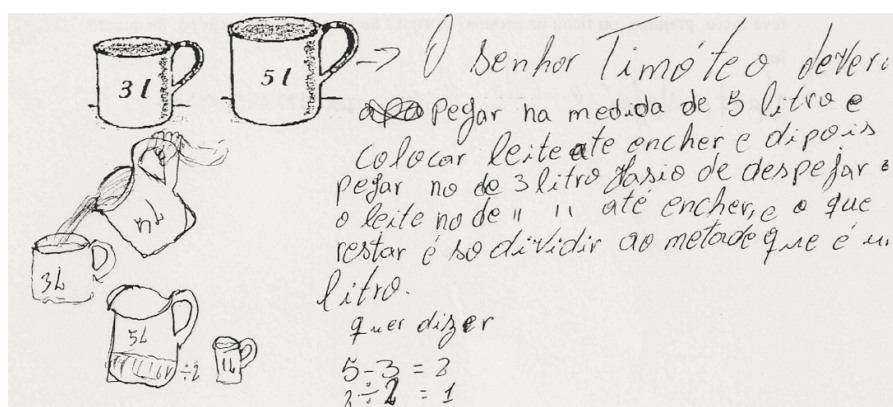 3l 5l → O senhor Timóteo dever
pegar na medida de 5 litro e
colocar leite ate encher e dipois
pegar no de 3 litro de despejar
o leite no de " " até encher, e o que
restar é so dividir ao metade que é u
litro.
quer dizer
5L
3L
5L
÷2
1L
5-3 = 2
2÷2 = 1